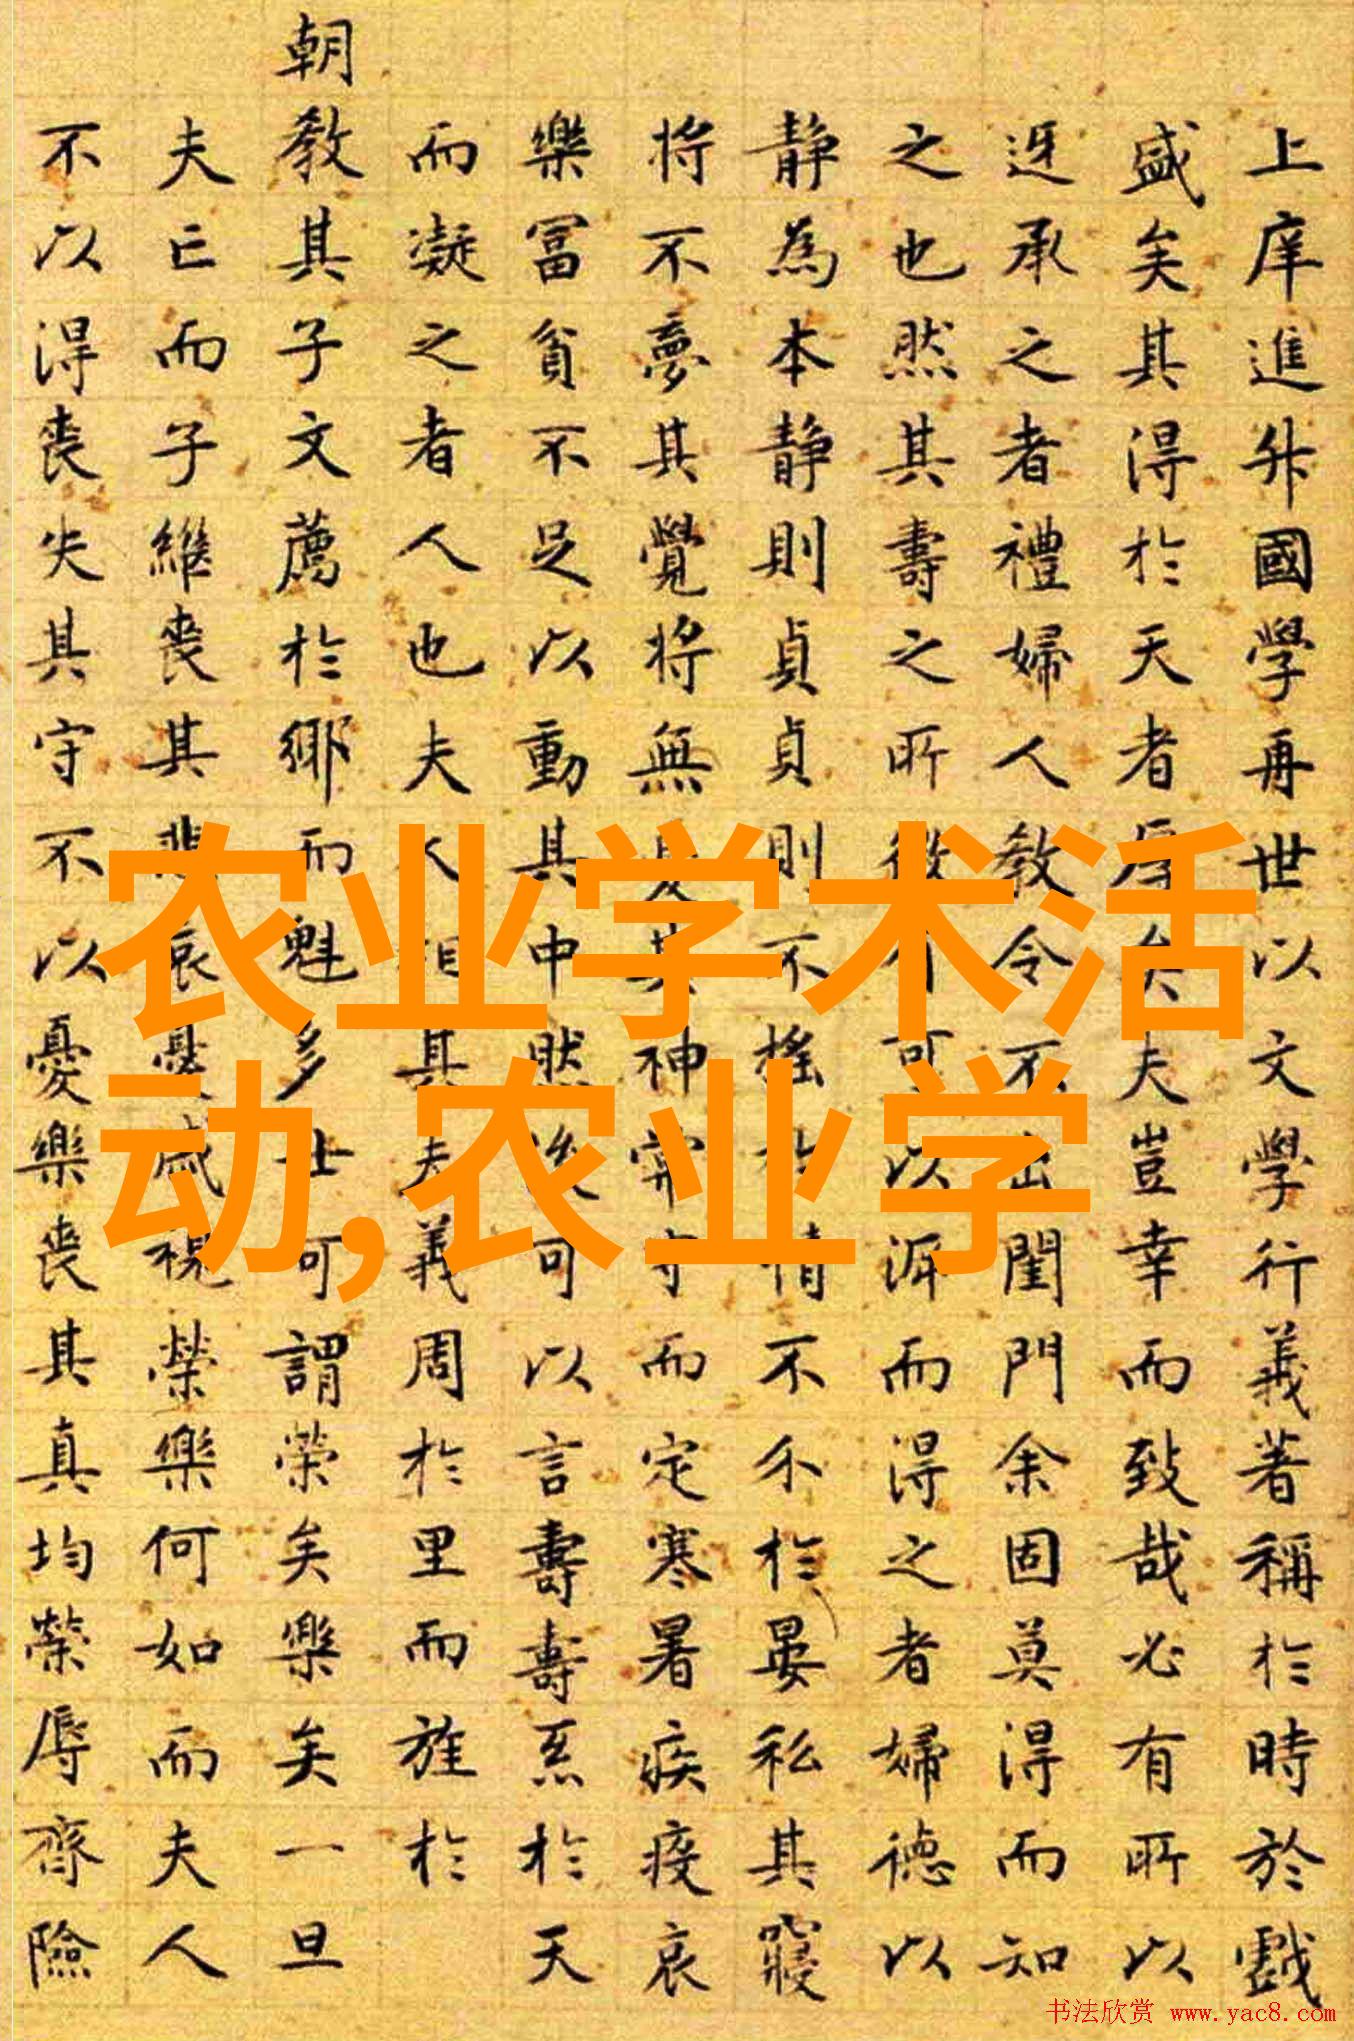 上庠進升國學再世以文學行義著稱於時於戲
盛矣其得於天者厚矣夫豈幸而致哉必有所以
迓承之者禮婦人教令不出閨門余固莫得而知
之也然其壽之所以可以源而得之者婦德以
静為本静則貞貞則不搖於情不於晏私其寢
將不夢其覺將無其神守而定寒暑疾疫哀
樂冨貧不足以動其中然後可以言壽壽系於天
而凝之者人也夫人相其夫義周於里而旌於
朝教其子文薦於鄉而魁多士可謂榮矣樂矣一旦
夫亡而子繼喪其悲哀憂戚視榮樂何如而夫人
不以得喪失其守不以憂樂喪其真均榮辱齊險
农业学术活
动,农业学
书法欣赏 www.yac8.com